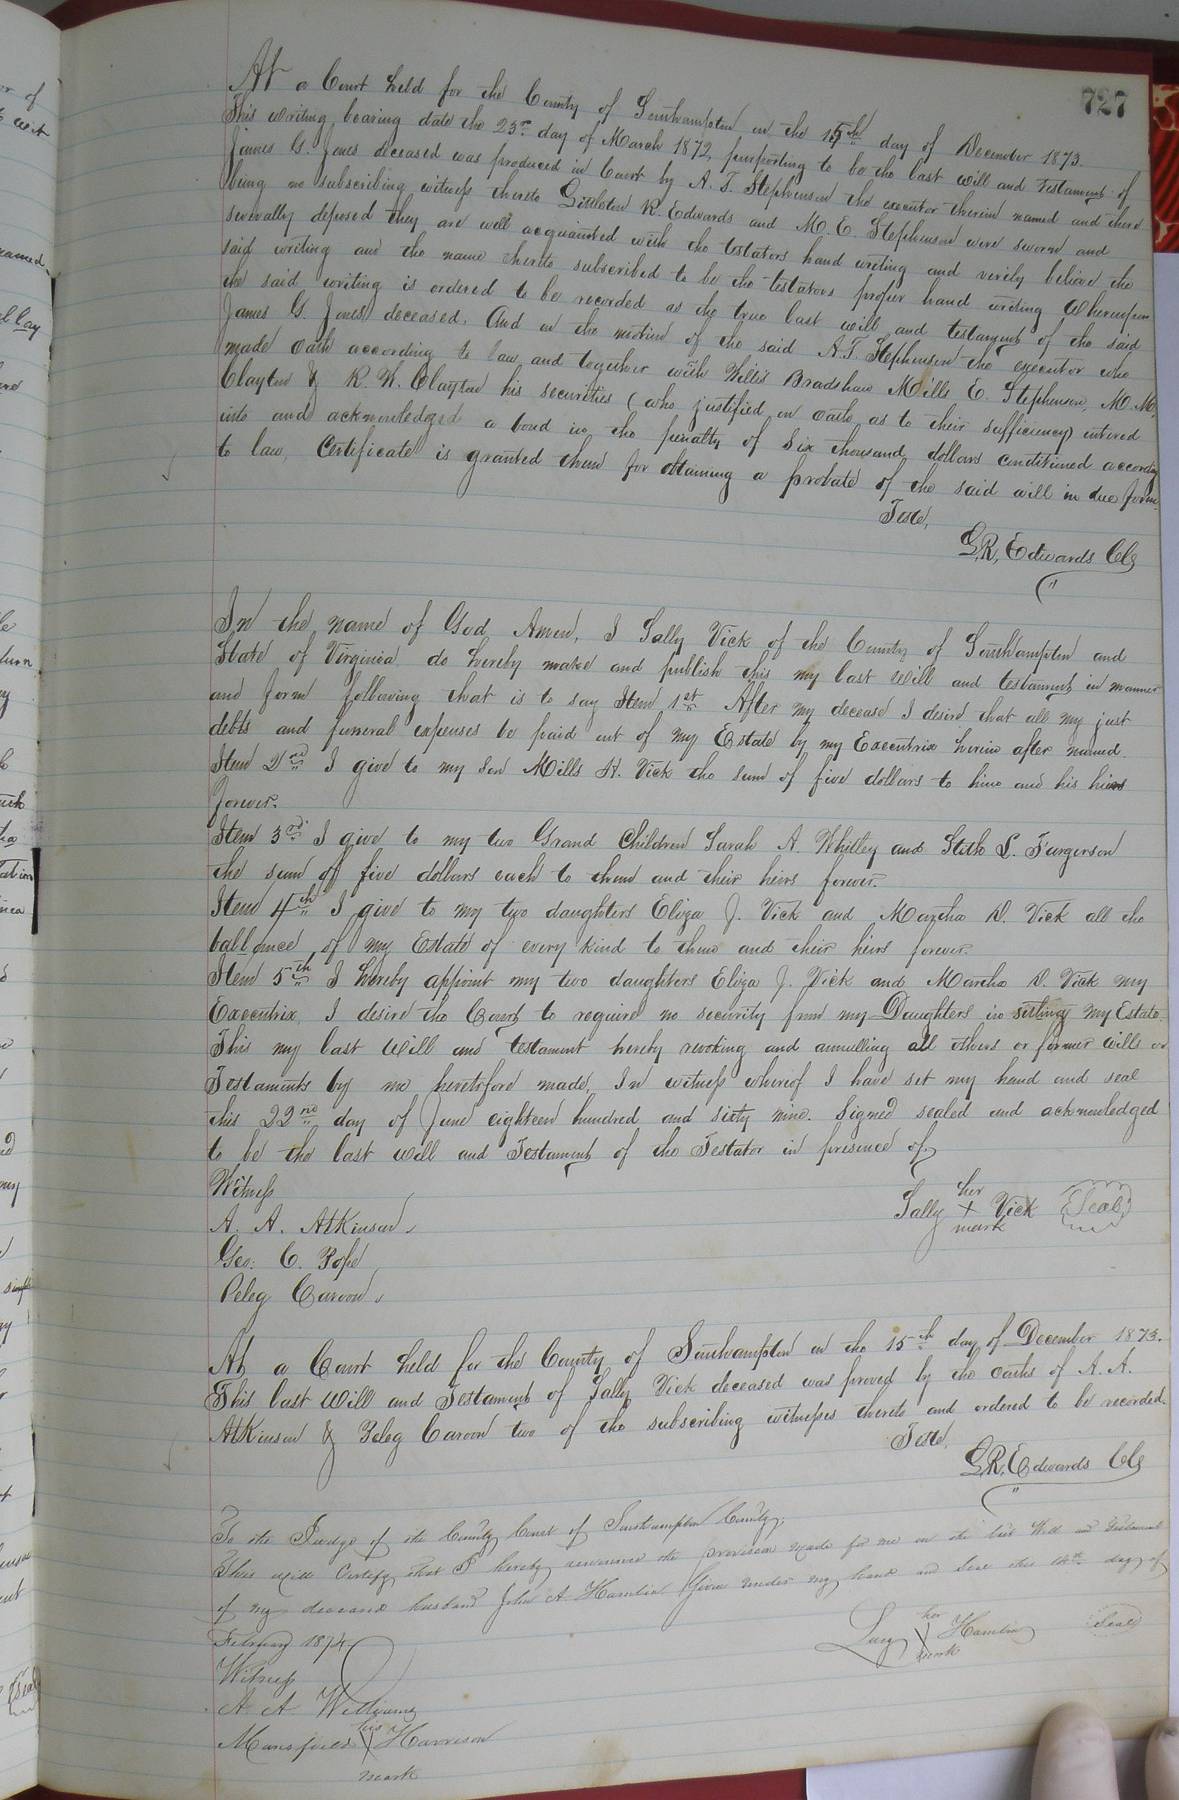 727
At a Court held for the County of Southampton on the 15th day of December 1873
This writing bearing date the 23rd day of March 1872, purporting to be the last will and testament of
James G. Jones deceased was produced in Court by A. T. Stephenson the executor therein named and there
being no subscribing witness thereto Littleton R. Edwards and M. E. Stephenson were sworn and
severally deposed they are well acquainted with the testators hand writing and verily believe the
said writing and the name thereto subscribed to be the testators proper hand writing Whereupon
the said writing is ordered to be recorded as the true last will and testament of the said
James G. Jones deceased. And on the motion of the said A. T. Stephenson the executor who
made oath according to law and together with Willis Bradshaw Mills E. Stephenson, M. M.
Clayton & R. W. Clayton his securities (who justified on oath as to their sufficiency) entered
into and acknowledged a bond in the penalty of Six thousand dollars conditioned according
to law, Certificate is granted them for obtaining a probate of the said will in due form.
Teste,
L. R. Edwards Clk
In the name of God Amen, I Sally Vick of the County of Southampton and
State of Virginia do hereby make and publish this my last Will and testament in manner
and form following that is to say Item 1st After my decease I desire that all my just
debts and funeral expenses be paid out of my Estate by my Executrix herein after named.
Item 2nd I give to my Son Mills H. Vick the sum of five dollars to him and his heirs
forever.
Item 3rd I give to my two Grand Children Sarah A. Whitley and L. Furgerson
the sum of five dollars each to them and their heirs forever.
Item 4th I give to my two daughters Eliza J. Vick and Martha D. Vick all the
ballance of my Estate of every kind to them and their heirs forever.
Item 5th I hereby appoint my two daughters Eliza J. Vick and Martha D. Vick my
Executrix, I desire the Court to require no security from my Daughters in setling my Estate.
This my last Will and testament hereby revoking and annulling all others or former wills or
Testaments by me heretofore made, In witness whereof I have set my hand and seal
this 22nd day of June eighteen hundred and sixty nine. Signed sealed and acknowledged
to be the last will and Testament of the Testator in presence of,
Witness
her
Sally X Vick (Seal)
mark
A. A. Atkinson,
Geo: C. Pope
Peleg Caroon,
At a Court held for the County of Southampton on the 15th day of December 1873.
This last Will and Testament of Sally Vick deceased was proved by the oaths of A. A.
Atkinson & Peleg Caroon two of the subscribing witnesses thereto and ordered to be recorded.
Teste,
L. R. Edwards Clk
To the Judge of the County Court of Southampton County;
This will Certify that I hereby renounce the provision made for me in the last Will and Testament
of my deceased husband John A Hamlin Given under my hand and Seal this day of
February 1874.
her
Lucy X Hamlin Seal
mark
Witness
A A Williams
his
Mansfield X Harrison
mark